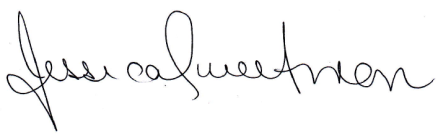 Jessica Sweetman